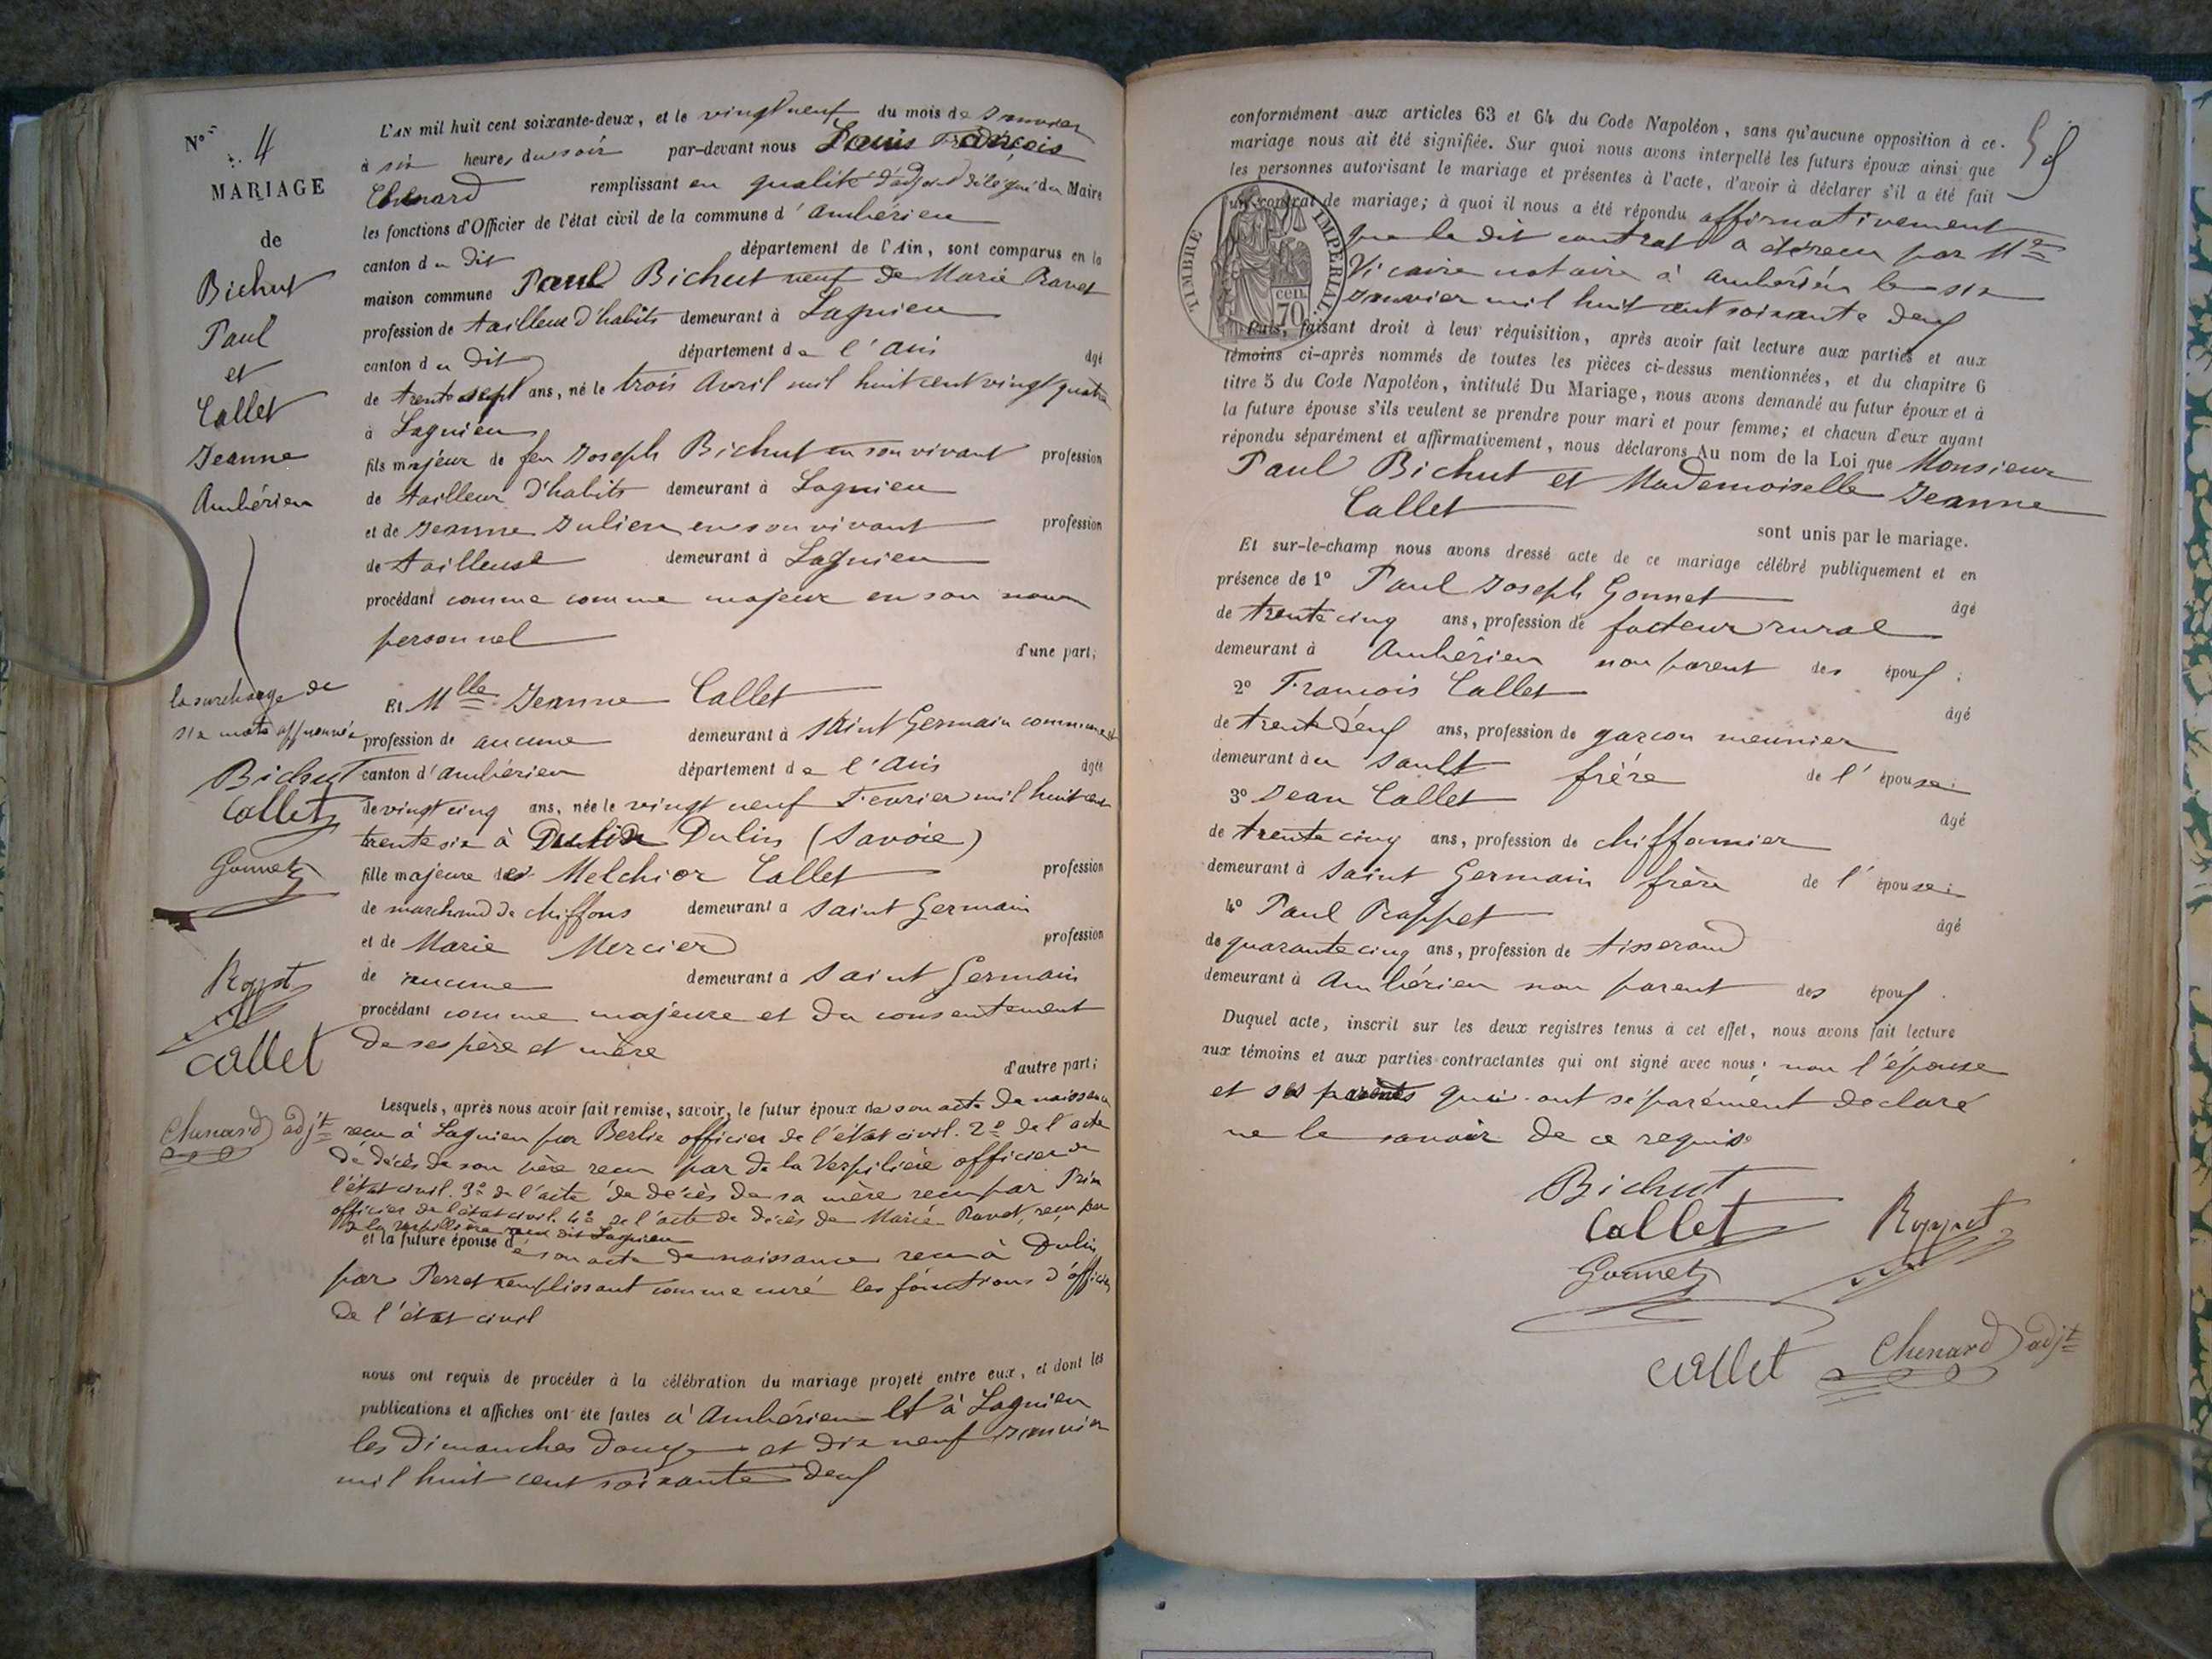 N° 4
MARIAGE
de
Bichut
Paul
et
Callet
Jeanne
Ambérieu
la surcharge de
six mots approuvée
Bichut
Callet
Gonnet
Roppet
callet
Chenard adjt
L'AN mil huit cent soixante-deux, et le vingt neuf du mois de Janvier
à six heures du soir par-devant nous Louis François
Chenard remplissant en qualité d'adjoint délégué du Maire
les fonctions d'Officier de l'état civil de la commune d'Ambérieu
canton du dit département de l'Ain, sont comparus en la
maison commune Paul Bichut veuf de Marie Ravet
profession de tailleur d'habits demeurant à Lagnieu
canton du dit département de l'Ain âgé
de trente sept ans, né le trois Avril mil huit cent vingt quatre
à Lagnieu
fils majeur de feu Joseph Bichut en son vivant profession
de tailleur d'habits demeurant à Lagnieu
et de Jeanne Julien en son vivant profession
de tailleuse demeurant à Lagnieu
procédant comme comme majeur en son nom
personnel d'une part;
Et Mlle Jeanne Callet
profession de aucune demeurant à Saint Germain commune
canton d'ambérieu département de l'Ain âgée
de vingt cinq ans, née le vingt neuf Fevrier mil huit cent
trente six à Dulin (Savoie)
fille majeure de Melchior Callet profession
de marchand de chiffons demeurant a Saint Germain
et de Marie Mercier profession
de aucune demeurant a Saint Germain
procédant comme majeure et du consentement
de ses père et mère d'autre part;
Lesquels, après nous avoir fait remise, savoir, le futur époux de son acte de naissance
recu à Lagnieu par Berlie officier de l'état civil. 2° de l'acte
de décès de son père recu par de la Verpilière officier de
l'état civil. 3° de l'acte de décès de sa mère recu par Prin
officier de l'état civil. 4° de l'acte de décès de Marie Ravet, reçu par
de la Verpillière au dit Lagnieu
et la future épouse de son acte de naissance recu à Dulin
par Perret remplissant comme curé les fonctions d'officier
de l'état civil
nous ont requis de procéder à la célébration du mariage projeté entre eux, et dont les
publications et affiches ont été faites à Ambérieu et à Lagnieu
les dimanches douze et dix neuf Janvier
mil huit cent soixante deux
conformément aux articles 63 et 64 du Code Napoléon, sans qu'aucune opposition à ce
mariage nous ait été signifiée. Sur quoi nous avons interpellé les futurs époux ainsi que
les personnes autorisant le mariage et présentes à l'acte, d'avoir à déclarer s'il a été fait
un contrat de mariage; à quoi il nous a été répondu affirmativement
que le dit contrat a été recu par Me
Vicaire notaire à Ambérieu le six
Janvier mil huit cent soixante deux
TIMBRE IMPERIAL
70 cen.
Puis, faisant droit à leur réquisition, après avoir fait lecture aux parties et aux
témoins ci-après nommés de toutes les pièces ci-dessus mentionnées, et du chapitre 6
titre 5 du Code Napoléon, intitulé Du Mariage, nous avons demandé au futur époux et à
la future épouse s'ils veulent se prendre pour mari et pour femme; et chacun d'eux ayant
répondu séparément et affirmativement, nous déclarons Au nom de la Loi que Monsieur
Paul Bichut et Mademoiselle Jeanne
Callet
sont unis par le mariage.
Et sur-le-champ nous avons dressé acte de ce mariage célébré publiquement et en
présence de 1° Paul Joseph Gonnet âgé
de trente cinq ans, profession de facteur rural
demeurant à Ambérieu non parent des époux;
2° François Callet âgé
de trente deux ans, profession de garcon meunier
demeurant au Sault frère de l'épouse;
3° Jean Callet âgé
de trente cinq ans, profession de chiffonnier
demeurant à Saint Germain frère de l'épouse;
4° Paul Roppet âgé
de quarante cinq ans, profession de tisserand
demeurant à Ambérieu non parent des époux.
Duquel acte, inscrit sur les deux registres tenus à cet effet, nous avons fait lecture
aux témoins et aux parties contractantes qui ont signé avec nous; non l'épouse
et ses parents qui ont séparément declaré
ne le savoir de ce requis
Bichut
Callet Roppet
Gonnet
callet Chenard adjt